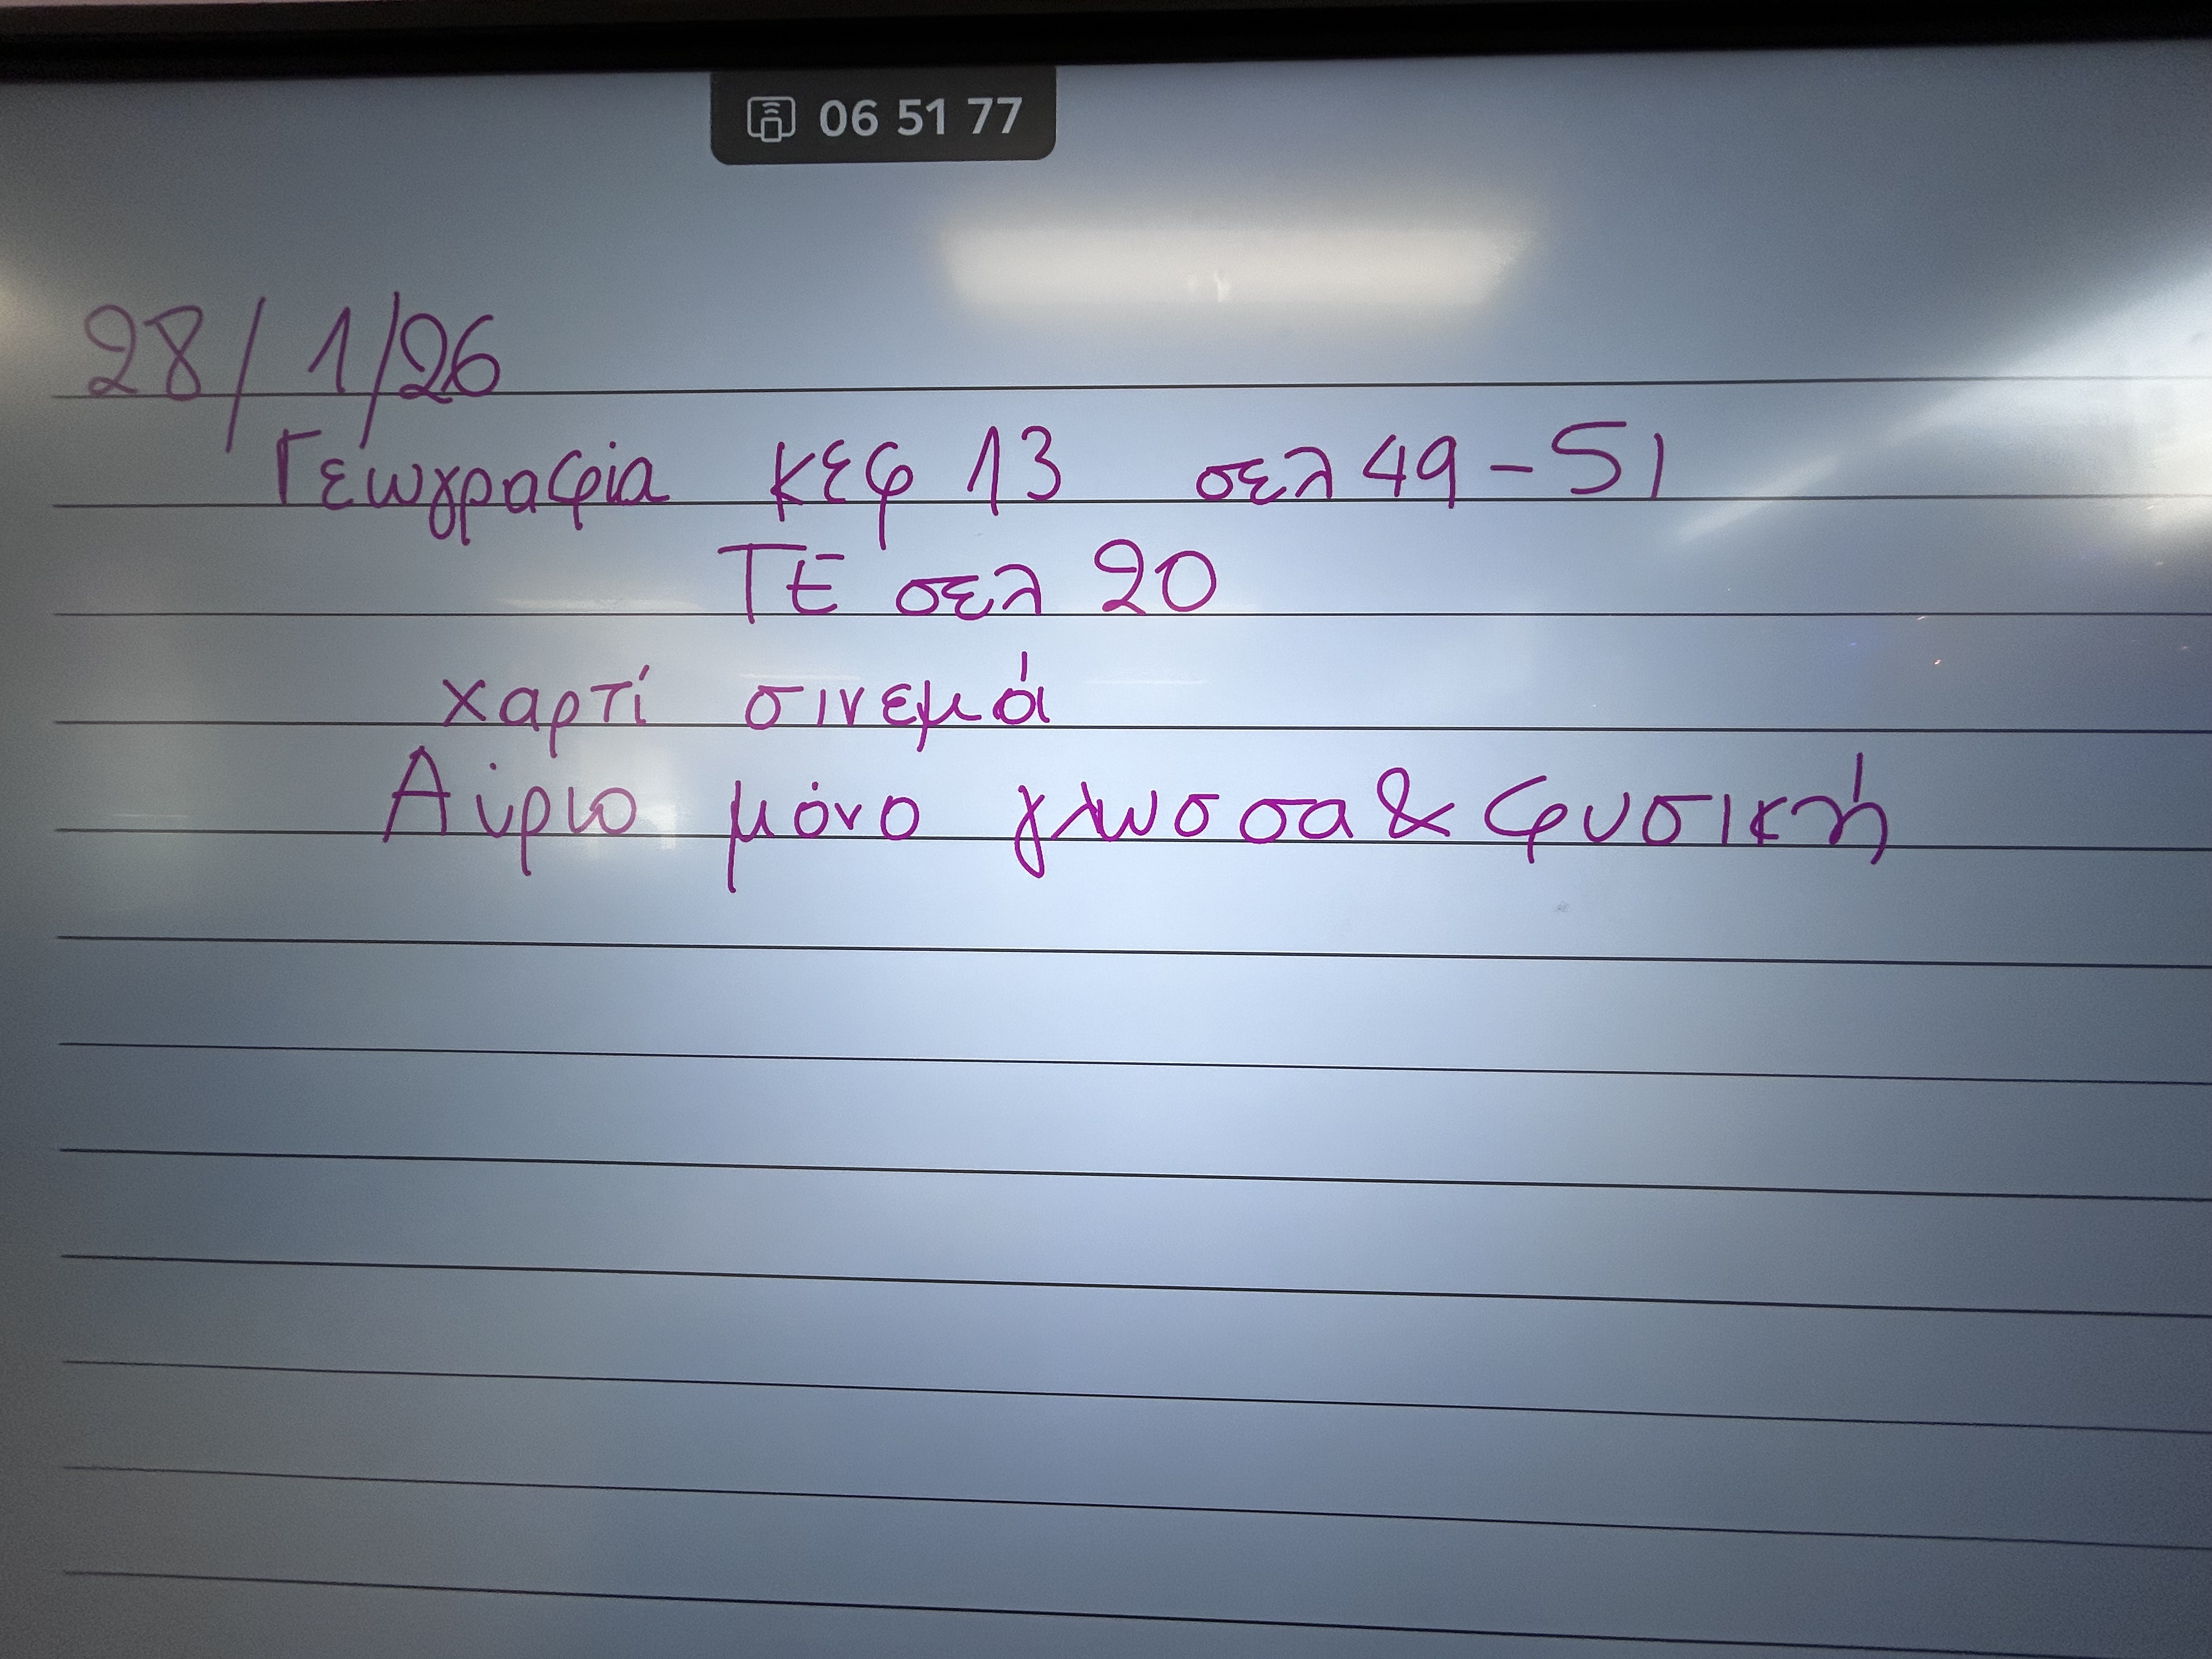 06 51 77
28/1/26
Γεωγραφία κεφ 13 σελ 49-51
ΤΕ σελ 20
χαρτί σινεμά
Αύριο μόνο γλωσσα & φυσική